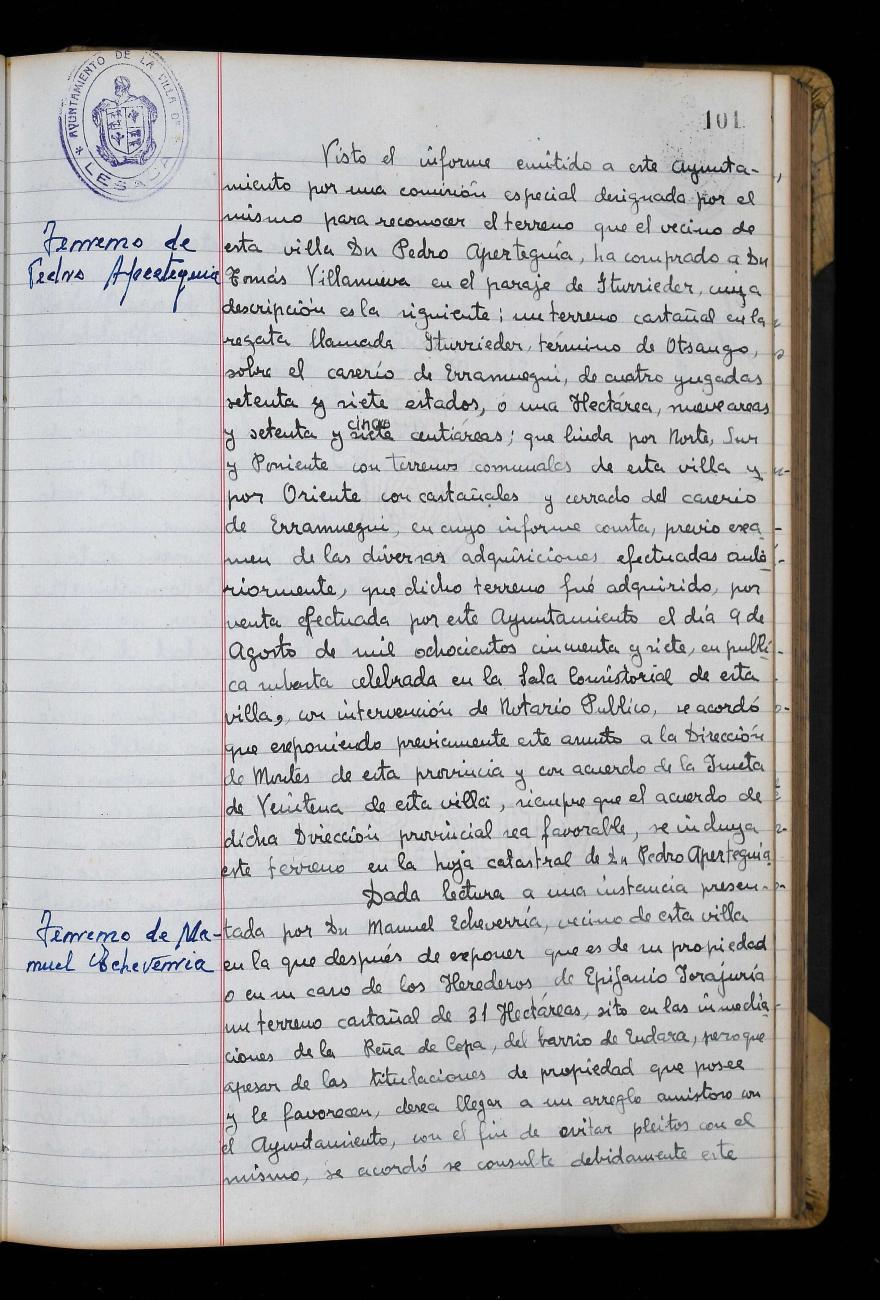 AYUNTAMIENTO DE LA VILLA DE
* LESACA *
101
Visto el informe emitido a este Ayunta-
miento por una comisión especial designada por el
mismo para reconocer el terreno que el vecino de
Terreno de
Pedro Apezteguia
esta villa Dn Pedro Aperteguía, ha comprado a Dn
Tomás Villanueva en el paraje de Iturrieder, cuya
descripción es la siguiente; un terreno castañal en la
regata llamada Iturrieder, término de Otsango,
sobre el caserío de Erramuegui, de cuatro yugadas
setenta y siete estados, o una Hectárea, nueve areas
cinco
y setenta y siete centiáreas; que linda por Norte, Sur
y Poniente con terrenos comunales de esta villa y
por Oriente con castañales y cerrado del caserio
de Erramuegui, en cuyo informe consta, previo exa
men de las diversas adquisiciones efectuadas ante
riormente, que dicho terreno fué adquirido, por
venta efectuada por este Ayuntamiento el día 9 de
Agosto de mil ochocientos cincuenta y siete, en públi
ca subasta celebrada en la Sala Consistorial de esta
villa, con intervención de Notario Publico, se acordó
que exponiendo previamente este asunto a la Dirección
de Montes de esta provincia y con acuerdo de la Junta
de Veintena de esta villa, siempre que el acuerdo de
dicha Dirección provincial sea favorable, se incluya
este terreno en la hoja catastral de Dn Pedro Aperteguía
Dada lectura a una instancia presen-
Terreno de Ma-
nuel Echeverria
tada por Dn Manuel Echeverría, vecino de esta villa
en la que después de exponer que es de su propiedad
o en su caso de los Herederos de Epifanio Torajuría
un terreno castañal de 31 Hectáreas, sito en las inmedia
ciones de la Peña de Copa, del barrio de Endara, pero que
apesar de las titulaciones de propiedad que posee
y le favorecen, desea llegar a un arreglo amistoso con
el Ayuntamiento, con el fin de evitar pleitos con el
mismo, se acordó se consulte debidamente este